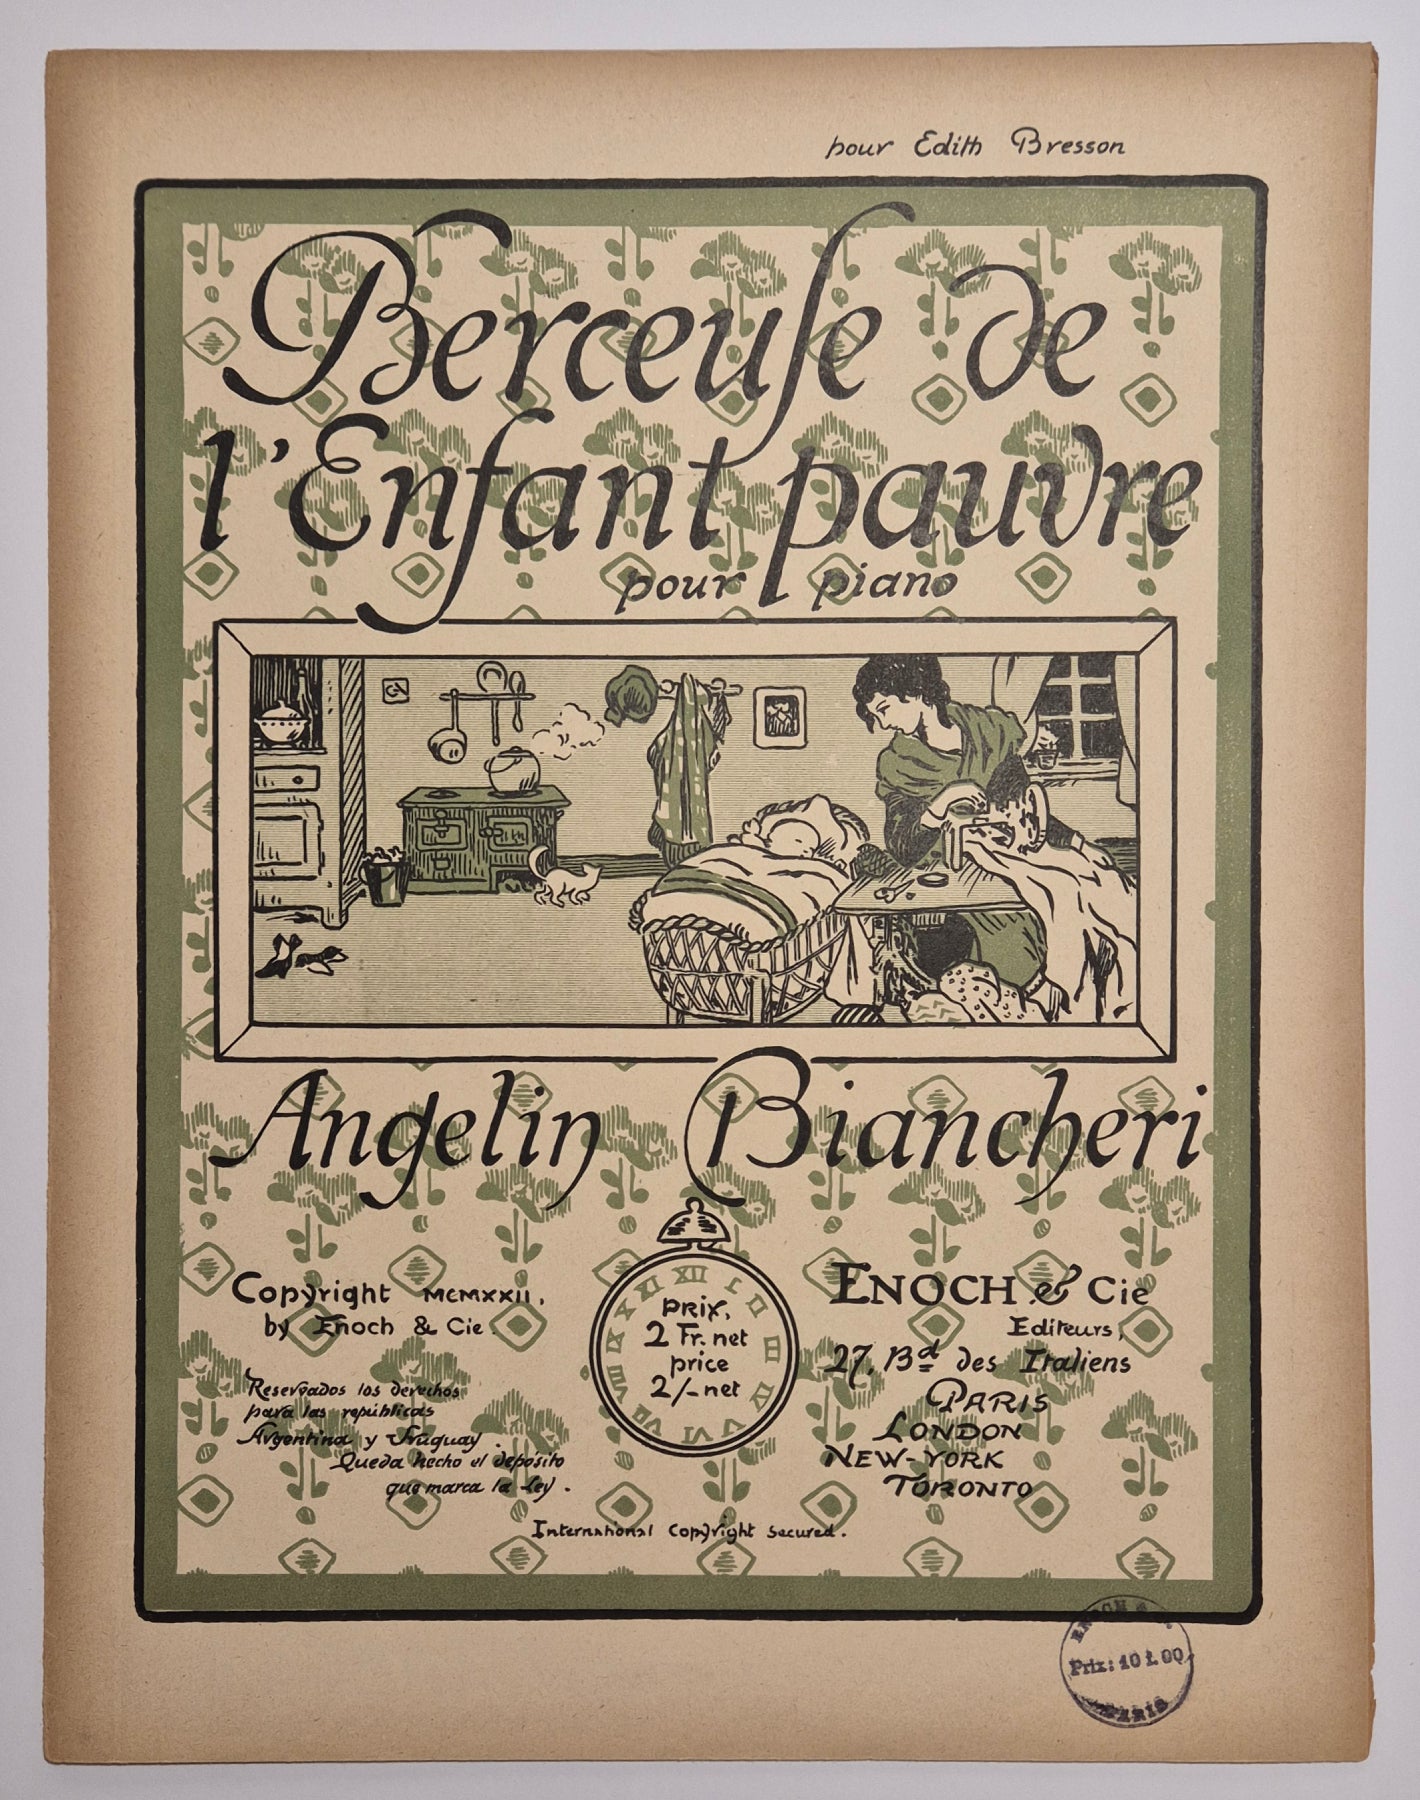 pour Edith Bresson
Berceuse de
l'Enfant pauvre
pour piano
Angelin Biancheri
Copyright MCMXXII.
by Enoch & Cie.
Reservados los derechos
para las repúblicas
Argentina y Uruguay.
Queda hecho el depósito
que marca la ley.
XII I II III IV V VI VII VIII IX X XI
PRIX,
2 Fr. net
price
2/- net
ENOCH & Cie
Editeurs,
27, Bd des Italiens
PARIS
LONDON
NEW-YORK
TORONTO
International Copyright secured.
ENOCH &
Prix: 10 f.00
PARIS